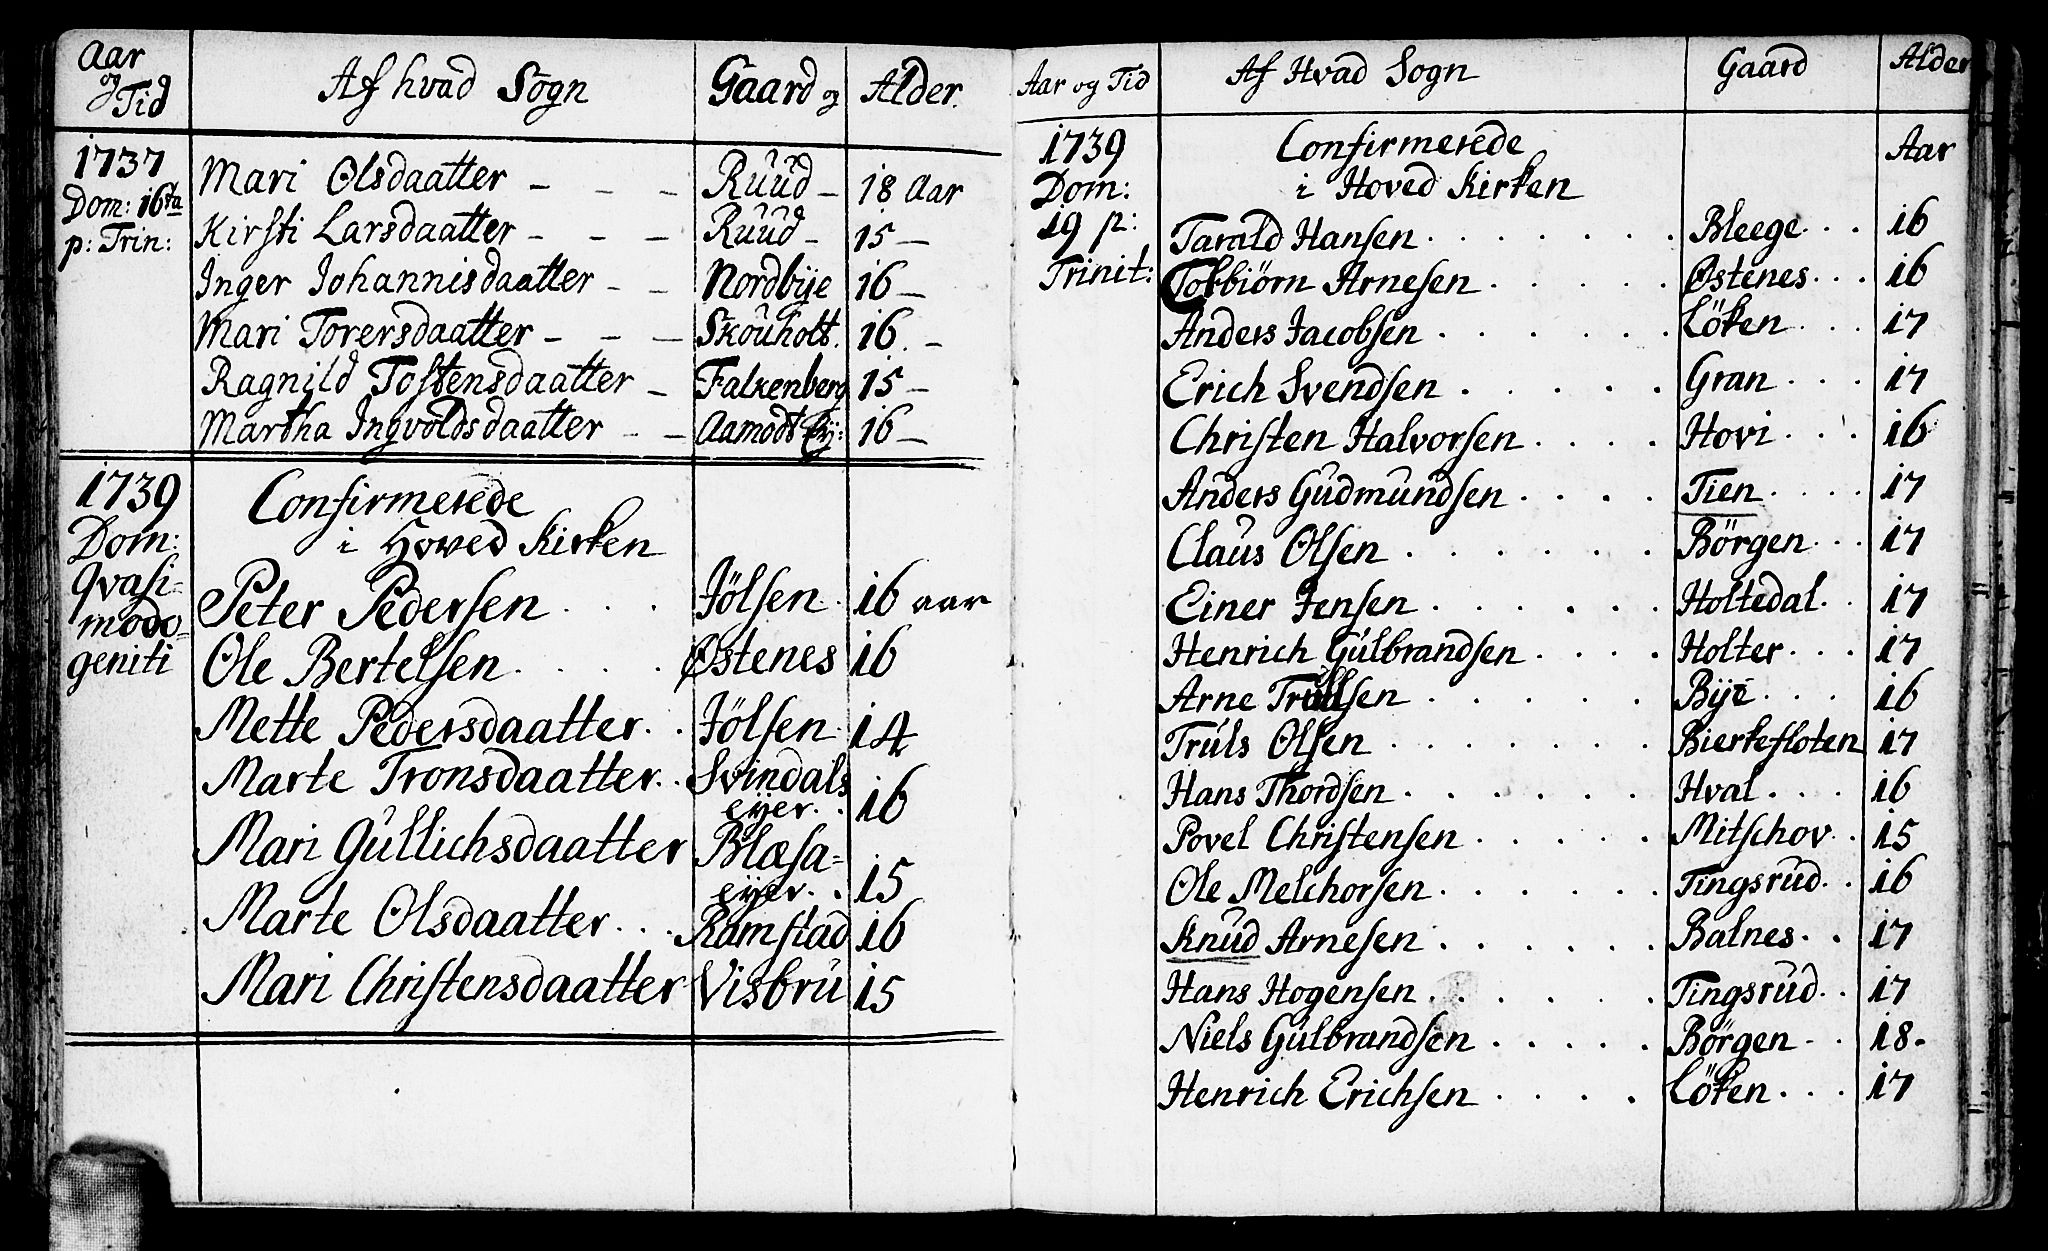 Aar og Tid | Af hvad Sogn | Gaard og | Alder.
1737 | Mari Olsdaatter - - - | Ruud - | 18 Aar
Dom: 16ta | Kirsti Larsdaatter - - - | Ruud - | 15 -
p: Trin: | Inger Johannisdaatter - - | Nordbÿe | 16 -
Mari Torersdaatter - - - | Skouholt. | 16. -
Ragnild Tostensdaatter - | Falkenberg | 15 -
Martha Ingvoldsdaatter - - | Aamodt Eÿ: | 16 -
1739 | Confirmerede
Dom: | i Hoved Kirken
Qvasi-
modo-
geniti
Peter Pedersen . . . | Jölsen. | 16 aar
Ole Bertelsen . . . . | Østenes | 16
Mette Pedersdaatter. . | Jölsen. | 14
Marte Tronsdaatter. . | Svindals eÿer. . | 16
Mari Gullichsdaatter | Blæsa= eÿer. . | 15
Marte Olsdaatter . . . | Ramstad | 16
Mari Christensdaatter | Visbru | 15
Aar og Tid | Af Hvad Sogn | Gaard | Alder
1739 | Confirmerede | Aar
Dom: | i Hoved Kirken
19 p:
Trinit:
Tarald Hansen . . . . . . | Bleege . . . | 16
Tobbiörn Arnesen . . . . . | Østenes . . . | 16
Anders Jacobsen . . . . . . | Löken . . . | 17
Erich Svendsen . . . . . | Gran . . . | 17
Christen Halvorsen . . . . | Hovi . . . | 16
Anders Gudmundsen . . . . | Tien . . . . | 17
Claus Olsen . . . . . . | Börgen . . . | 17
Einer Jensen . . . . . . | Holtedal. . | 17
Henrich Gulbrandsen . . . . | Holter . . . | 17
Arne Trulsen . . . . . | Bÿe . . . . | 16
Truls Olsen . . . . . . . | Bierkefloten | 17
Hans Thordsen . . . . . . | Hval . . . . | 16
Povel Christensen . . . . . | Mitschov . . | 15
Ole Melchorsen . . . . . . | Tingsrud . . | 16
Knud Arnesen . . . . . . | Balnes . . | 17
Hans Hogensen . . . . . . | Tingsrud . . | 17
Niels Gulbrandsen . . . . . | Börgen . . | 18.
Henrich Erichsen . . . . | Löken . . . | 17